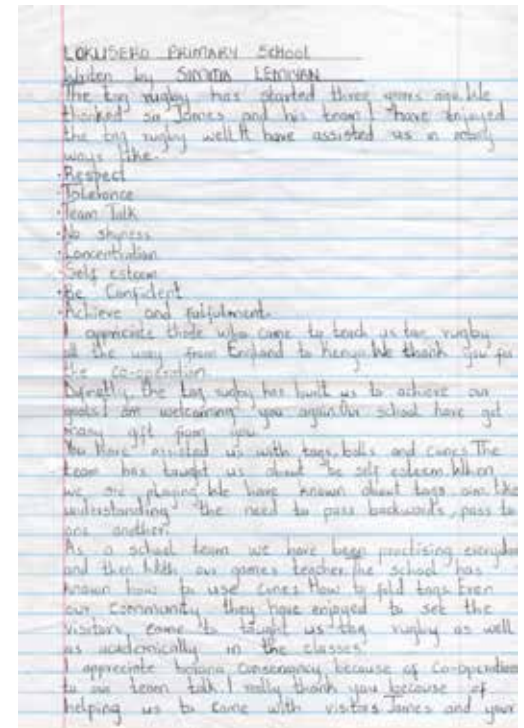 LOKUSERO PRIMARY School
Writen by SIMMIA LEMIYAN
The tag rugby has started three years ago. We
thanked sir James and his team. I have enjoyed
the tag rugby well. It have assisted us in
ways like:-
·Respect
·Tolerance
·Team Talk
·No shyness
·Concentration
·Self esteem
·Be Confident
·Achieve and fulfulment.
I appriciate those who came to teach us tag rugby
all the way from England to Kenya. We thank you for
the co-operation
the tag rugby has built us to achieve our
goals. I am welcoming you again. Our school have got
many gift from you.
You have assisted us with tags, balls and cones. The
team has taught us about be self esteem. When
we are playing. We have known about tags aim like
understanding the need to pass backwards, pass to
one another.
As a school team we have been practising everyday
and then with our games teacher. The school has
known how to use cones. How to fold tags. Even
our community they have enjoyed to see the
visitors came to taught us tag rugby as well
as academically in the classes.
I appreciate conservancy because of co-operation
to our team talk. I really thank you because of
helping us to came with visitors James and your